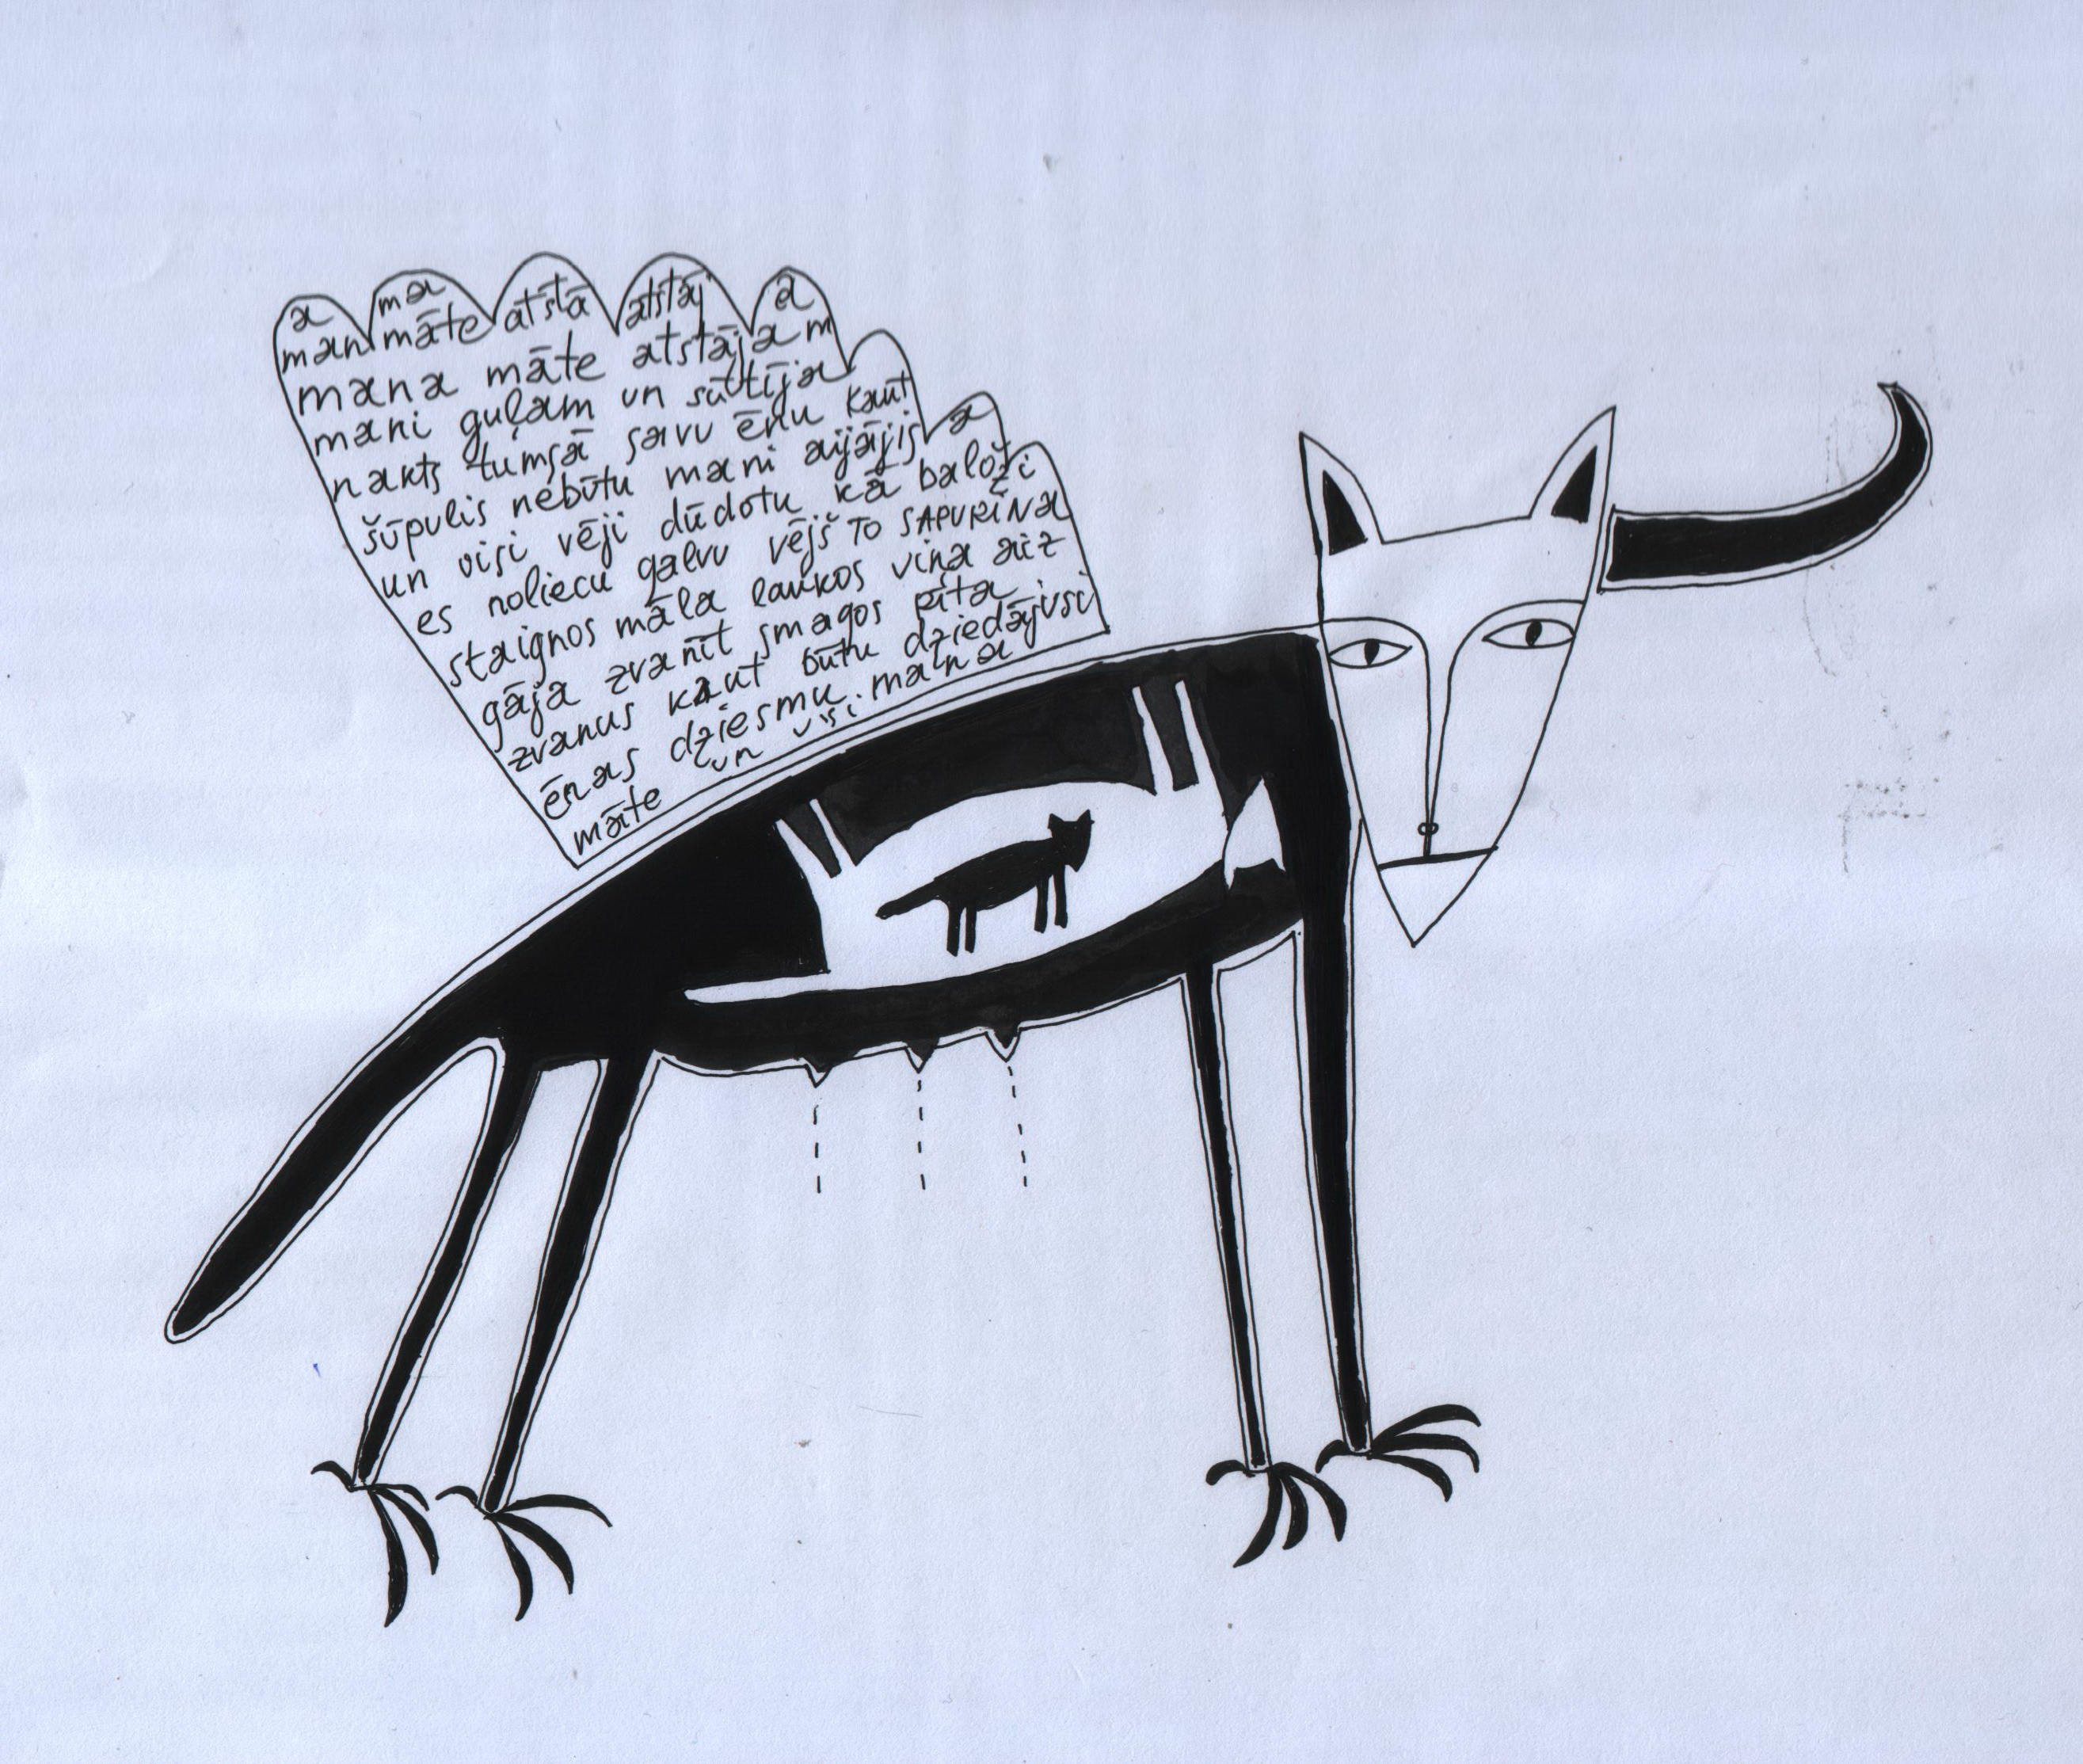 a ma atstā atstāj a
man māte
mana māte atstājam
mani guļam un sūtīja
nakts tumsā savu ēnu kaut
šūpulis nebūtu mani aijājis a
un visi vēji dūdotu kā baloži
es noliecu galvu vējš TO SAPURINA
staignos māla laukos viņa aiz
gāja zvanīt smagos rīta
zvanus kaut būtu dziedājusi
ēnas dziesmu. mana
māte un visi